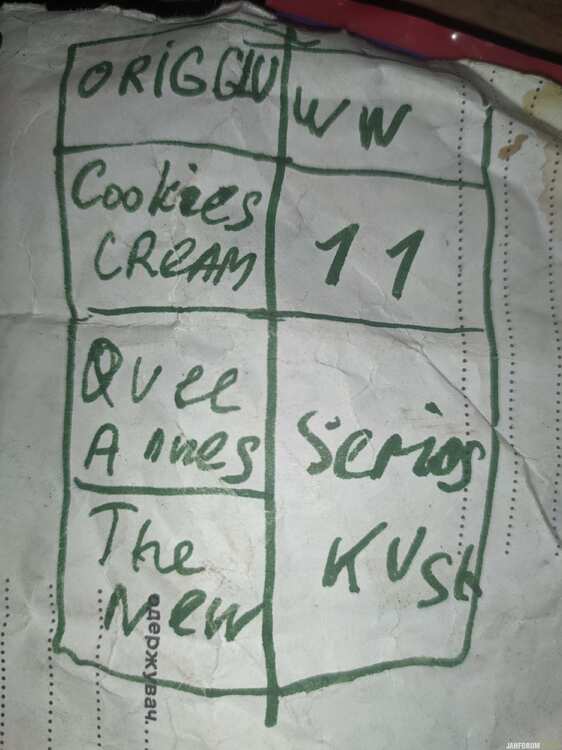 ORiGGIU
WW
Cookies
CREAM
11
Quee
Annes
Serios
Kush
The
New
одержувач
JAHFORUM